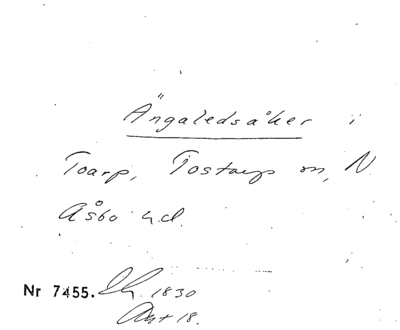 Ängaledsåker i
Toarp, Tostarps sn, N.
Åsbo hd.
Nr 7455. 1830
Akt 18.